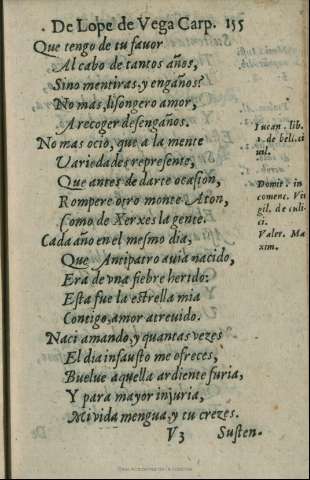 De Lope de Vega Carp. 155
Que tengo de tu fauor
Al cabo de tantos años,
Sino mentiras, y engaños?
No mas, lisongero amor,
A recoger desengaños.
No mas ocio, que a la mente
Uariedades represente,
Que antes de darte ocasion,
Rompere otro monte Aton,
Como de Xerxes la gente.
Cada año en el mesmo dia,
Que Antipatro auia nacido,
Era de vna fiebre herido:
Esta fue la estrella mia
Contigo, amor atreuido.
Naci amando, y quantas vezes
El dia infausto me ofreces,
Buelue aquella ardiente furia,
Y para mayor injuria,
Mi vida mengua, y tu crezes.
V3 Susten-
Lucan. lib.
2. de beli. ci
uil.
Domit. in
comenc. Vir
gil. de culi-
ci.
Valer. Ma
xim.